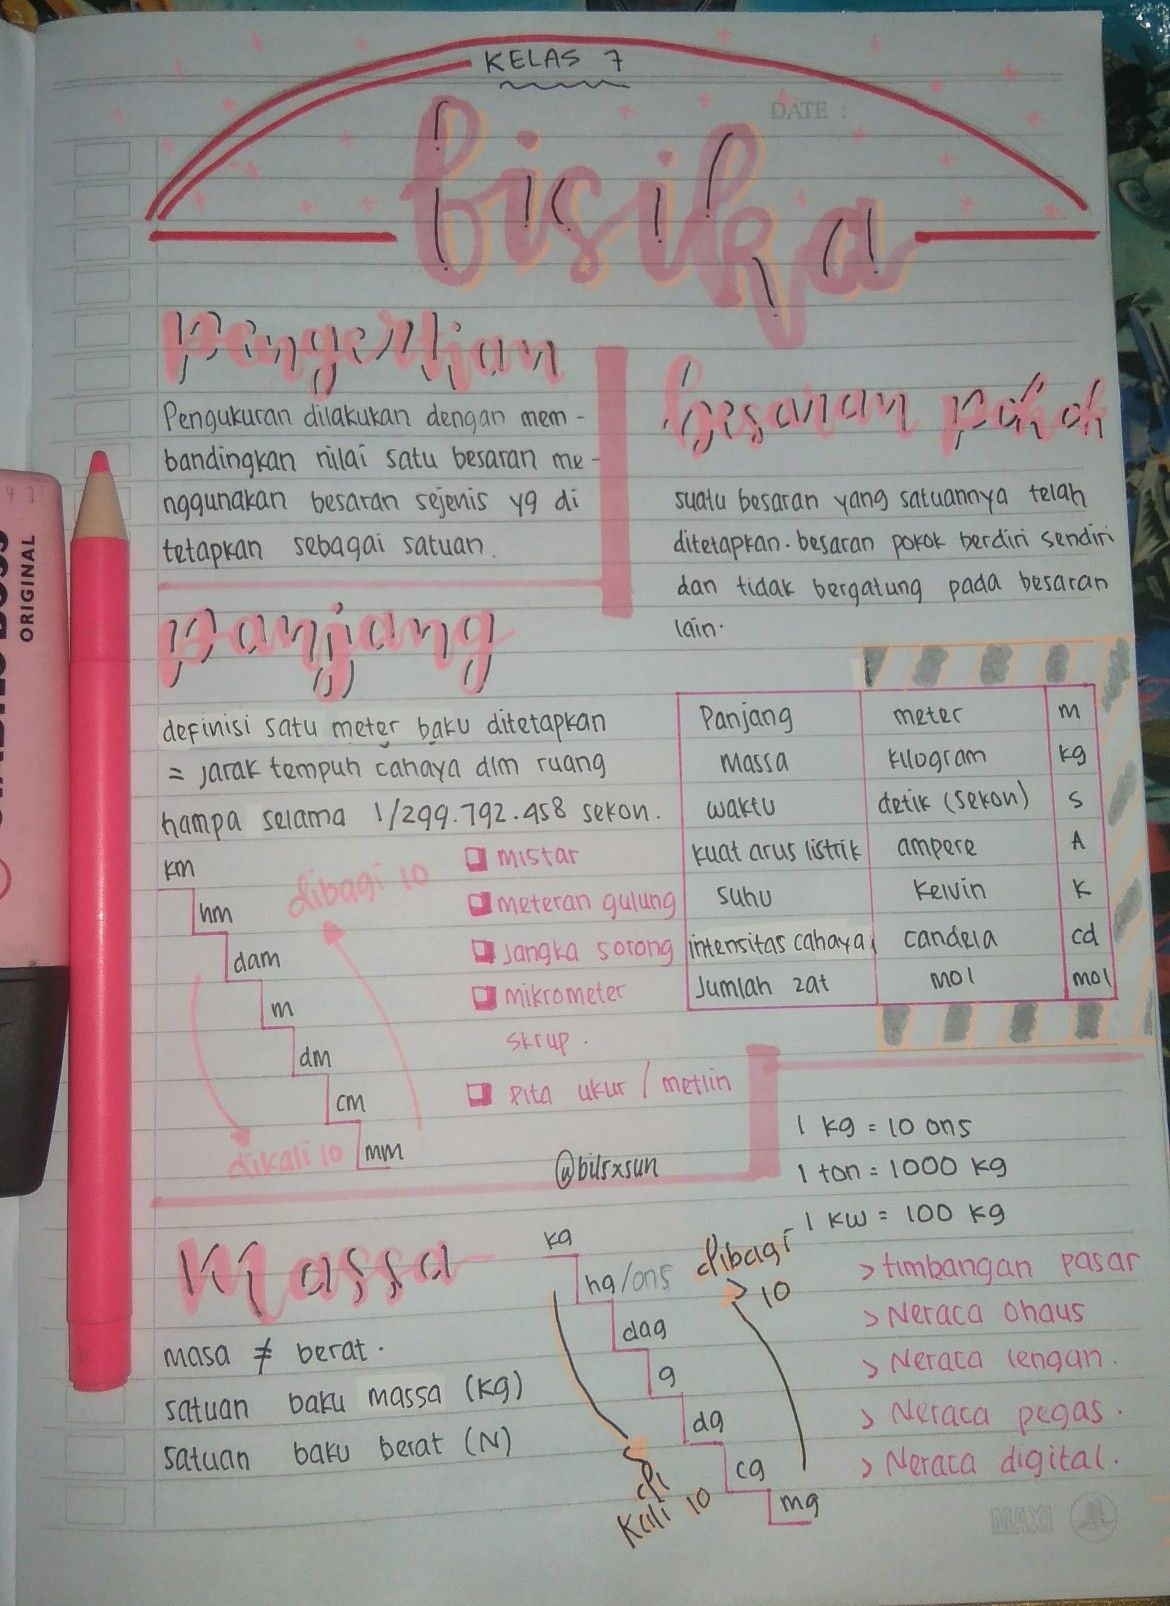 KELAS 7
DATE :
fisika
Pengertian
Pengukuran dilakukan dengan mem -
bandingkan nilai satu besaran me -
nggunakan besaran sejenis yg di
tetapkan sebagai satuan.
besaran pokok
suatu besaran yang satuannya telah
ditetapkan. besaran pokok berdiri sendiri
dan tidak bergatung pada besaran
lain.
Panjang meter m
Massa kilogram kg
waktu detik (sekon) s
kuat arus listrik ampere A
suhu kelvin K
intensitas cahaya candela cd
Jumlah zat mol mol
Panjang
definisi satu meter baku ditetapkan
= jarak tempuh cahaya dlm ruang
hampa selama 1/299.792.458 sekon.
km
hm
dam
m
dm
cm
mm
dibagi 10
dikali 10
mistar
meteran gulung
Jangka sorong
mikrometer
skrup.
Pita ukur / metlin
@bilsxsun
1 kg = 10 ons
1 ton = 1000 kg
1 kw = 100 kg
Massa
masa ≠ berat.
satuan baku massa (kg)
satuan baku berat (N)
kg
hg/ons
dag
g
dg
cg
mg
dibagi
10
di
kali 10
> timbangan pasar
> Neraca ohaus
> Neraca lengan.
> Neraca pegas.
> Neraca digital.
MAXI
ORIGINAL
BOSS